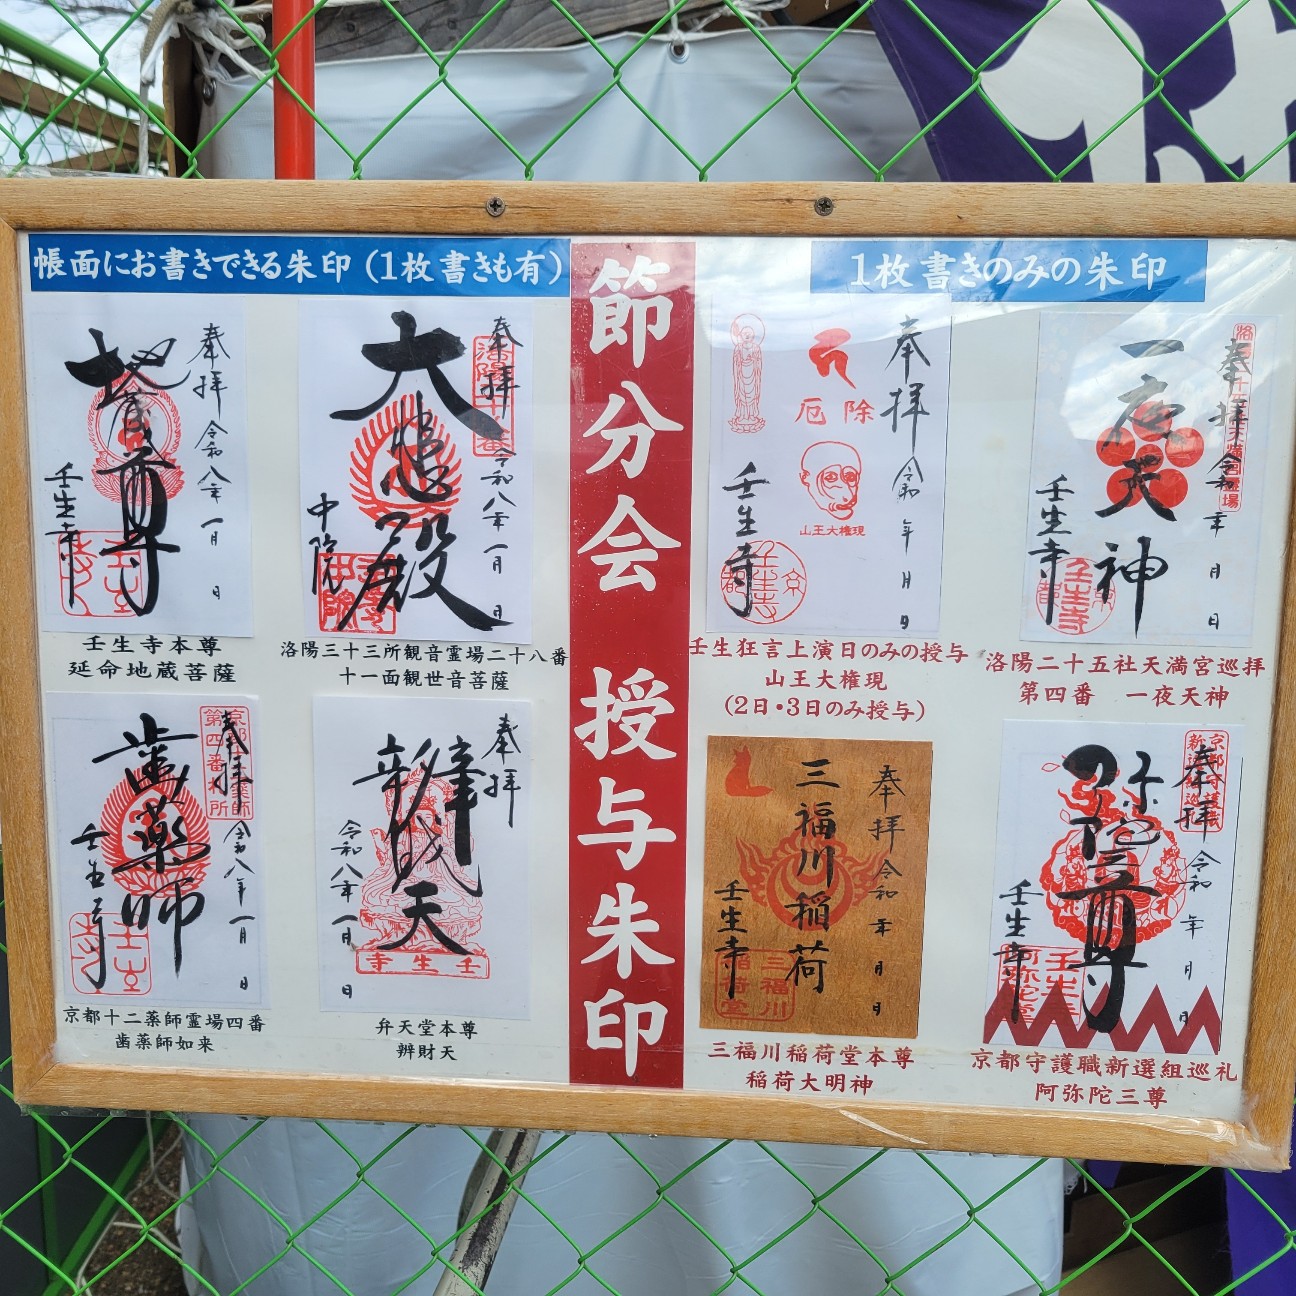 帳面にお書きできる朱印(1枚書きも有)
奉拝
令和八年一月 日
地蔵尊
壬生寺
壬生寺本尊
延命地蔵菩薩
奉拝
令和八年一月 日
大悲殿
中院
洛陽三十三所観音霊場二十八番
十一面観世音菩薩
奉拝
令和八年一月 日
歯薬師
壬生寺
京都十二薬師霊場四番
歯薬師如来
奉拝
辨戝天
令和八年一月 日
壬生寺
弁天堂本尊
辨財天
節分会 授与朱印
1枚書きのみの朱印
奉拝
令和 年 月 日
厄除
山王大権現
壬生寺
壬生狂言上演日のみの授与
山王大権現
(2日・3日のみ授与)
奉拝
令和 年 月 日
一夜天神
壬生寺
洛陽二十五社天満宮巡拝
第四番 一夜天神
奉拝
令和 年 月 日
三福川稲荷
壬生寺
三福川稲荷堂
三福川稲荷堂本尊
稲荷大明神
奉拝
令和 年 月 日
弥陀尊
壬生寺
京都守護職新選組巡礼
阿弥陀三尊